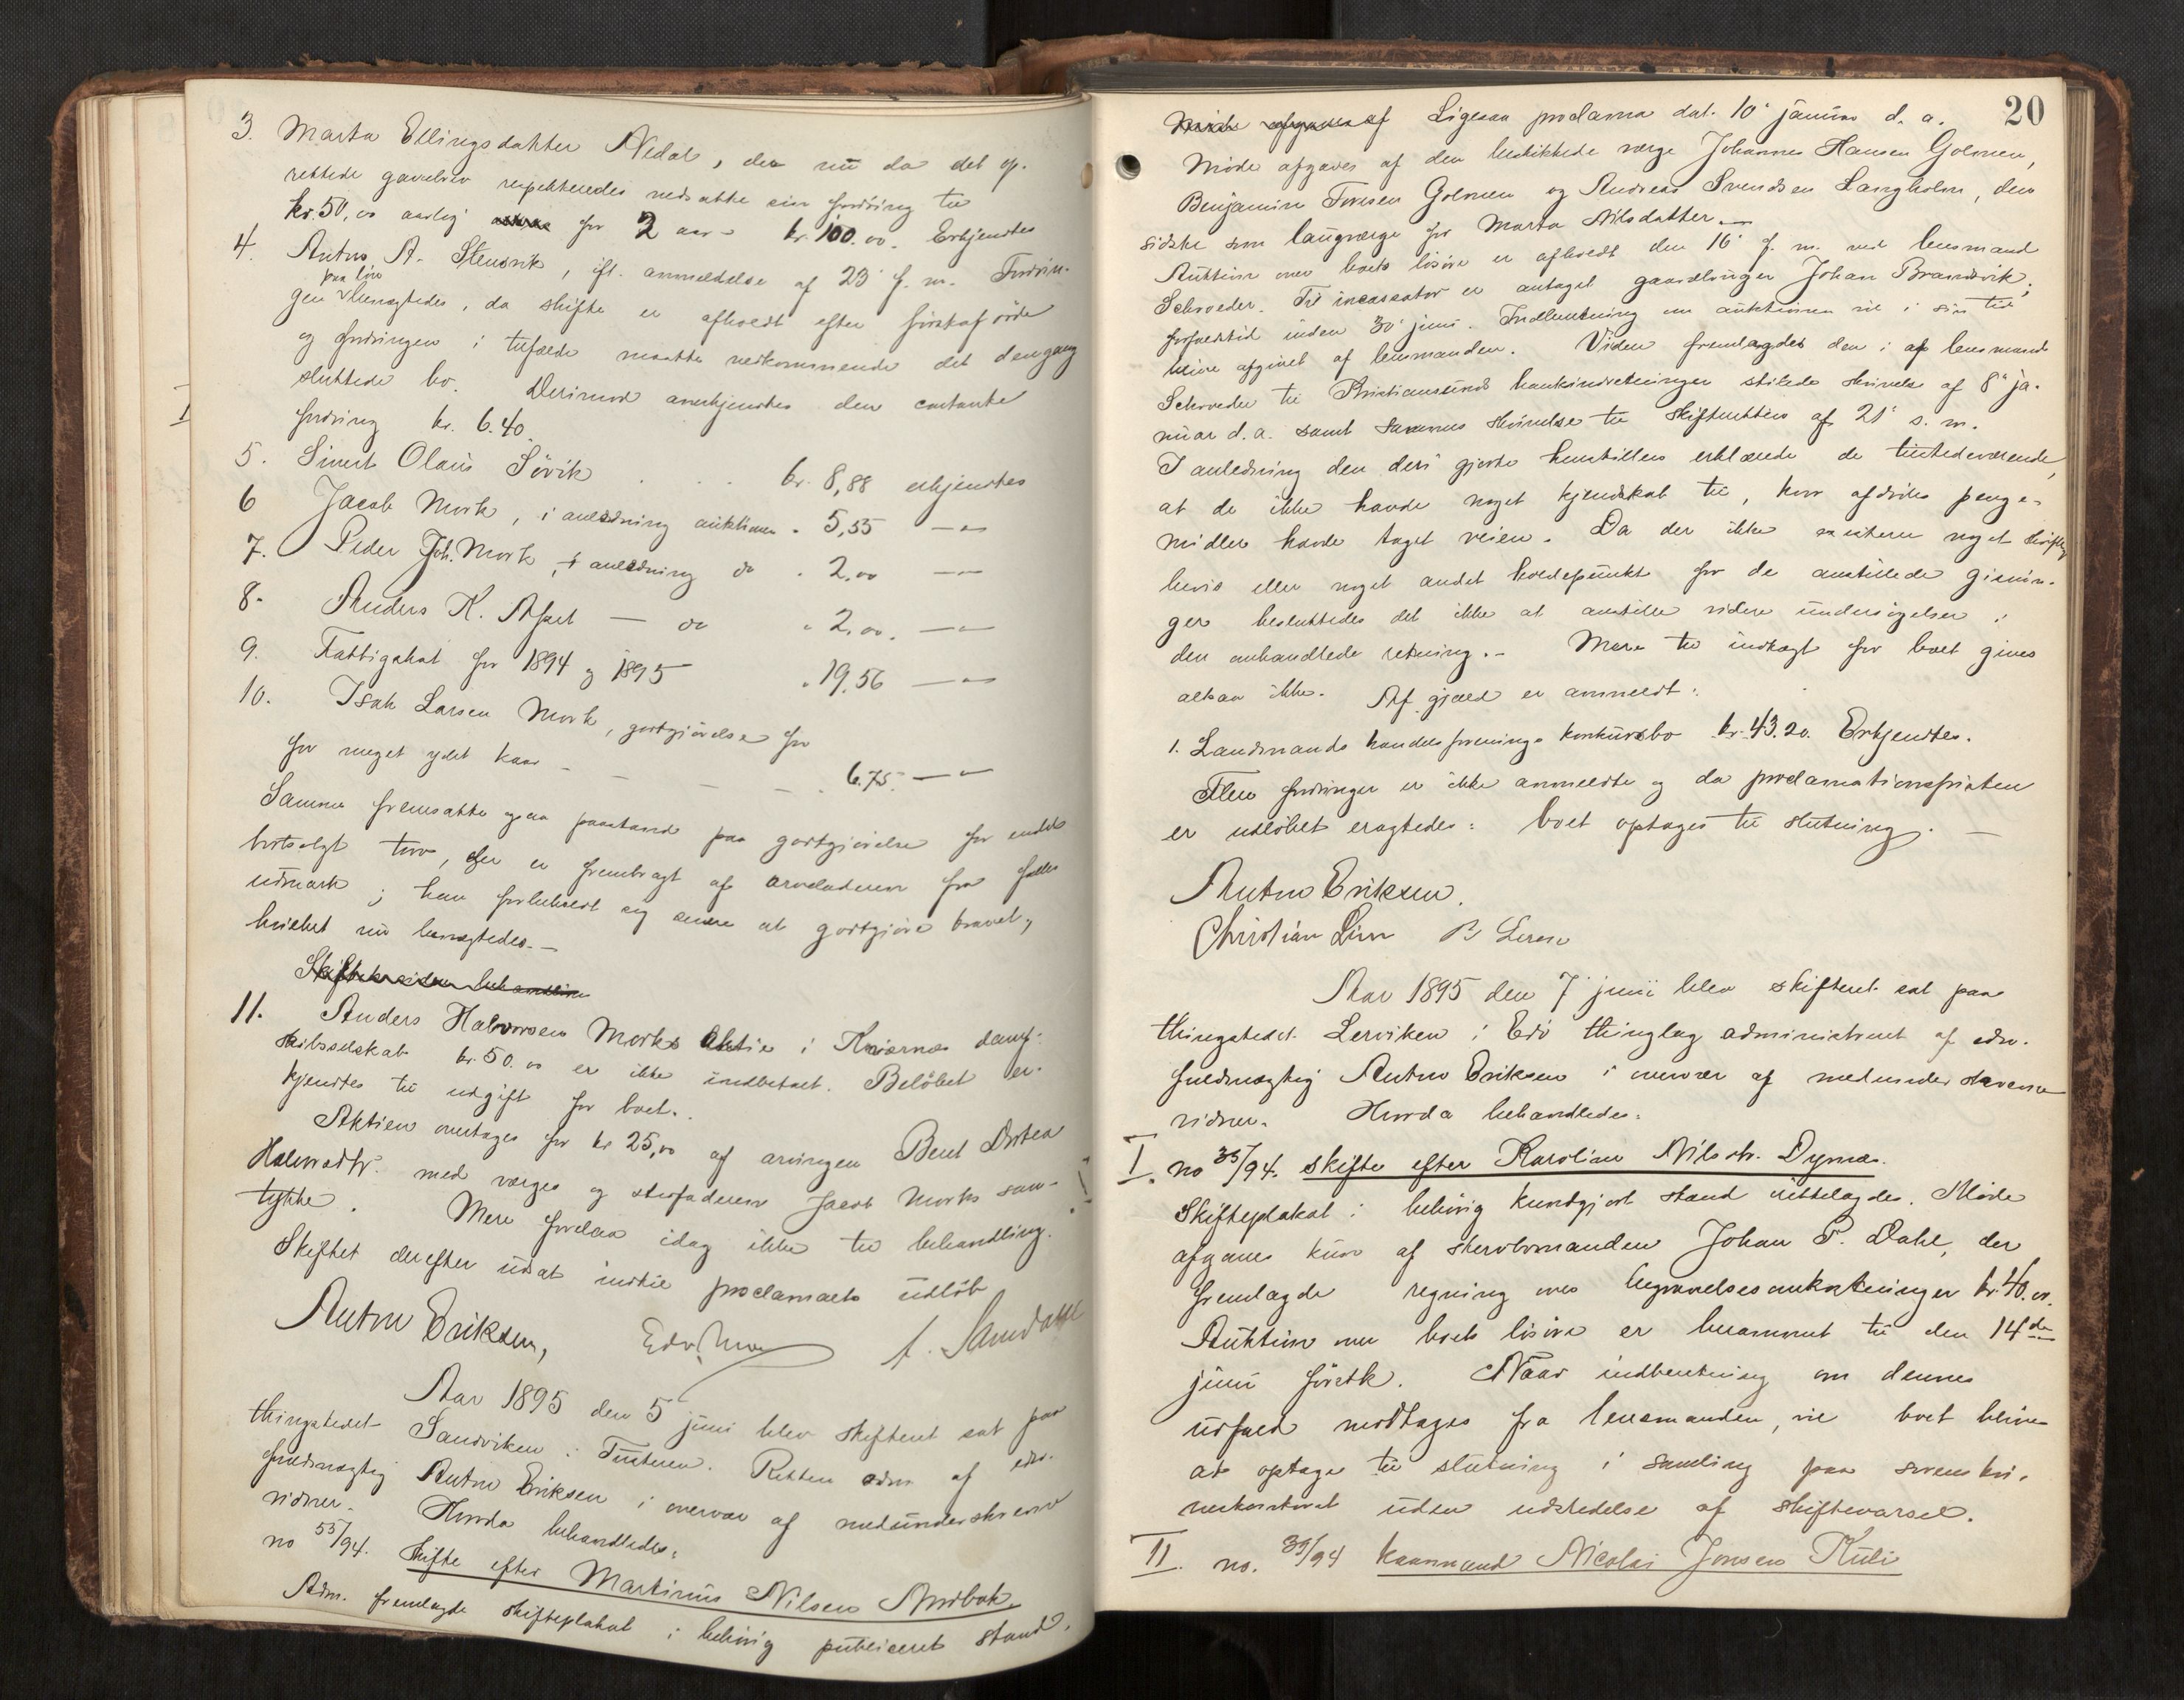 3. Marta Ellingsdatter Nedal, der nu da det op-
rettede gavebrev respekteredes nedsatte sin fordring til
kr. 50,00 aarlig for 2 aar = kr. 100.00. Erkjendtes
4. Anton A. Stensvik, ifl. anmeldelse af 23' f. m. Fordrin-
paa lön
gen benegtedes, da skifte er afholdt efter
og fordringen i tilfælde maatte vedkommende det dengang
sluttede bo. Derimod anerkjendtes den contante
fordring kr. 6.40.
5. Sivert Olaus Sövik . . . kr. 8,88 erkjendtes
6 Jacob Mork, i anledning auktionen " 5,55 — " —
7. Peder Joh. Mork, i anledning do " 2,00 — " —
8. Anders K. — do " 2.00. — " —
9. Fattigskat for 1894 og 1895 " 19.56 — " —
10. Isak Larsen Mork, godtgjörelse for
for meget ydet kaar — — — — " 6.75. — " —
Samme fremsatte ogsaa paastand paa godtgjörelse for endel
bortsolgt torv, der er frembragt af arveladeren fra fælles
udmark; han forbeholdt sig senere at godtgjöre kravet,
hvilket nu benegtedes. —
Skiftet behandling
11. Anders Halvorsen Morks Aktie i Kværnes damp-
skibsselskab kr. 50.00 er ikke indbetalt. Belöbet er-
kjendtes til udgift for boet.
Aktien overtages for kr 25,00 af arvingen Bent
Halvordtr. med verges og stedfaderen Jacob Morks sam-
tykke. Mere forelaa idag ikke til behandling.
Skiftet derefter udsat indtil proclamaets udlöb
Anton Eriksen, Edv. A. Sandahl
Aar 1895 den 5 juni blev skifteret sat paa
thingstedet Sandviken i Tusteren. Retten adm. af edsv.
fuldmægtig Anton Eriksen i overvær af medunderskrevne
vidner. Hvorda behandledes:
no 55/94. Skifte efter Martinus Nilsen
Adm. fremlagde skifteplakat i behörig publiceret stand.
20
Möde afgaves af Ligesaa proclama dat. 10' januar d. a.
Möde afgaves af den beskikkede værge Johannes Hansen Golmen,
Benjamin Toresen Golmen og Andreas Svendsen Langholm, den
sidste som laugværge for Marta Nilsdatter. —
Auktion over boets lösöre er afholdt den 16' f. m. ved lensmand
Schroeder. Til incassator er antaget gaardbruger Johan Brandsvik;
forfaldstid inden 30' juni. Indberetning om auktionen vil i sin tid
blive afgivet af lensmanden. Viden fremlagdes den i af lensmand
Schroeder til Kristiansunds bankindretninger stilede skrivelse af 8' ja-
nuar d. a. samt sammes skrivelse til skifteretten af 21' s. m.
I anledning den deri gjorte henstillen erklærede de tilstedeværende,
at de ikke havde noget kjendskab til, hvor afdödes penge-
midler havde taget veien. Da der ikke existerer noget skriftlig
bevis eller noget andet holdepunkt for de anstillede gisnin-
ger besluttedes det ikke at anstille videre undersögelser i
den omhandlede retning. — Mere til indtægt for boet gives
altsaa ikke. Af gjæld er anmeldt:
1. Landmands handelsforenings konkursbo kr. 43.20. Erkjendtes.
Flere fordringer er ikke anmeldte og da proclamationsfristen
er udlöbet eragtedes: boet optages til slutning. —
Anton Eriksen.
Christian B
Aar 1895 den 7' juni blev skifteret sat paa
thingstedet Lerviken i Edö thinglag administreret af edsv.
fuldmægtig Anton Eriksen i overvær af medunderskrevne
vidner. Hvorda behandledes:
I. no 35/94. skifte efter Karoline Nilsdtr. Dyrnæs.
Skifteplakat i behörig kundgjort stand vedlagdes. Möde
afgaves kun af sterbomanden Johan P. Dahl, der
fremlagde regning over begravelsesomkostninger kr. 40.00.
Auktion over boets lösöre er berammet til den 14de
juni förstk. Naar indberetning om dennes
udfald modtages fra lensmanden, vil boet blive
at optage til slutning i samling paa sorenskri-
verkontoret uden udstedelse af skiftevarsel.
II. no. 39/94 kaarmand Nicolai Jonsen Kuli